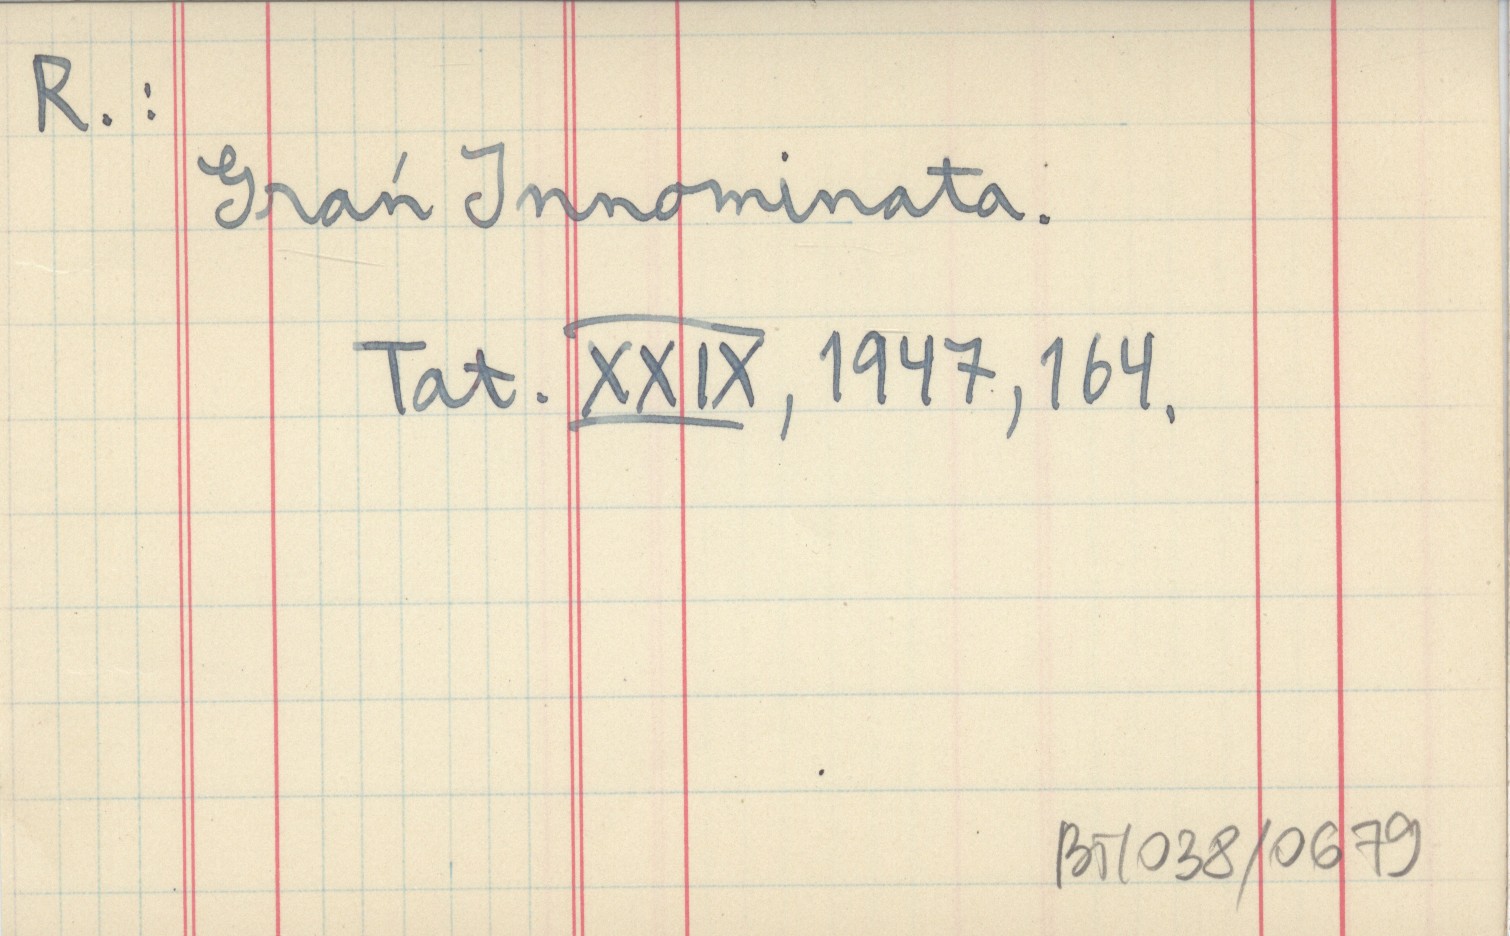 R.:
Grań Innominata.
Tat. XXIX, 1947, 164.
BT/038/0679